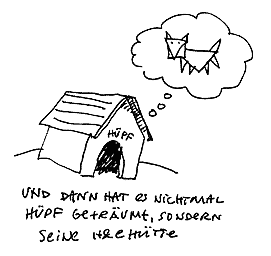 HÜPF
UND DANN HAT ES NICHTMAL
HÜPF GETRÄUMT, SONDERN
SEINE